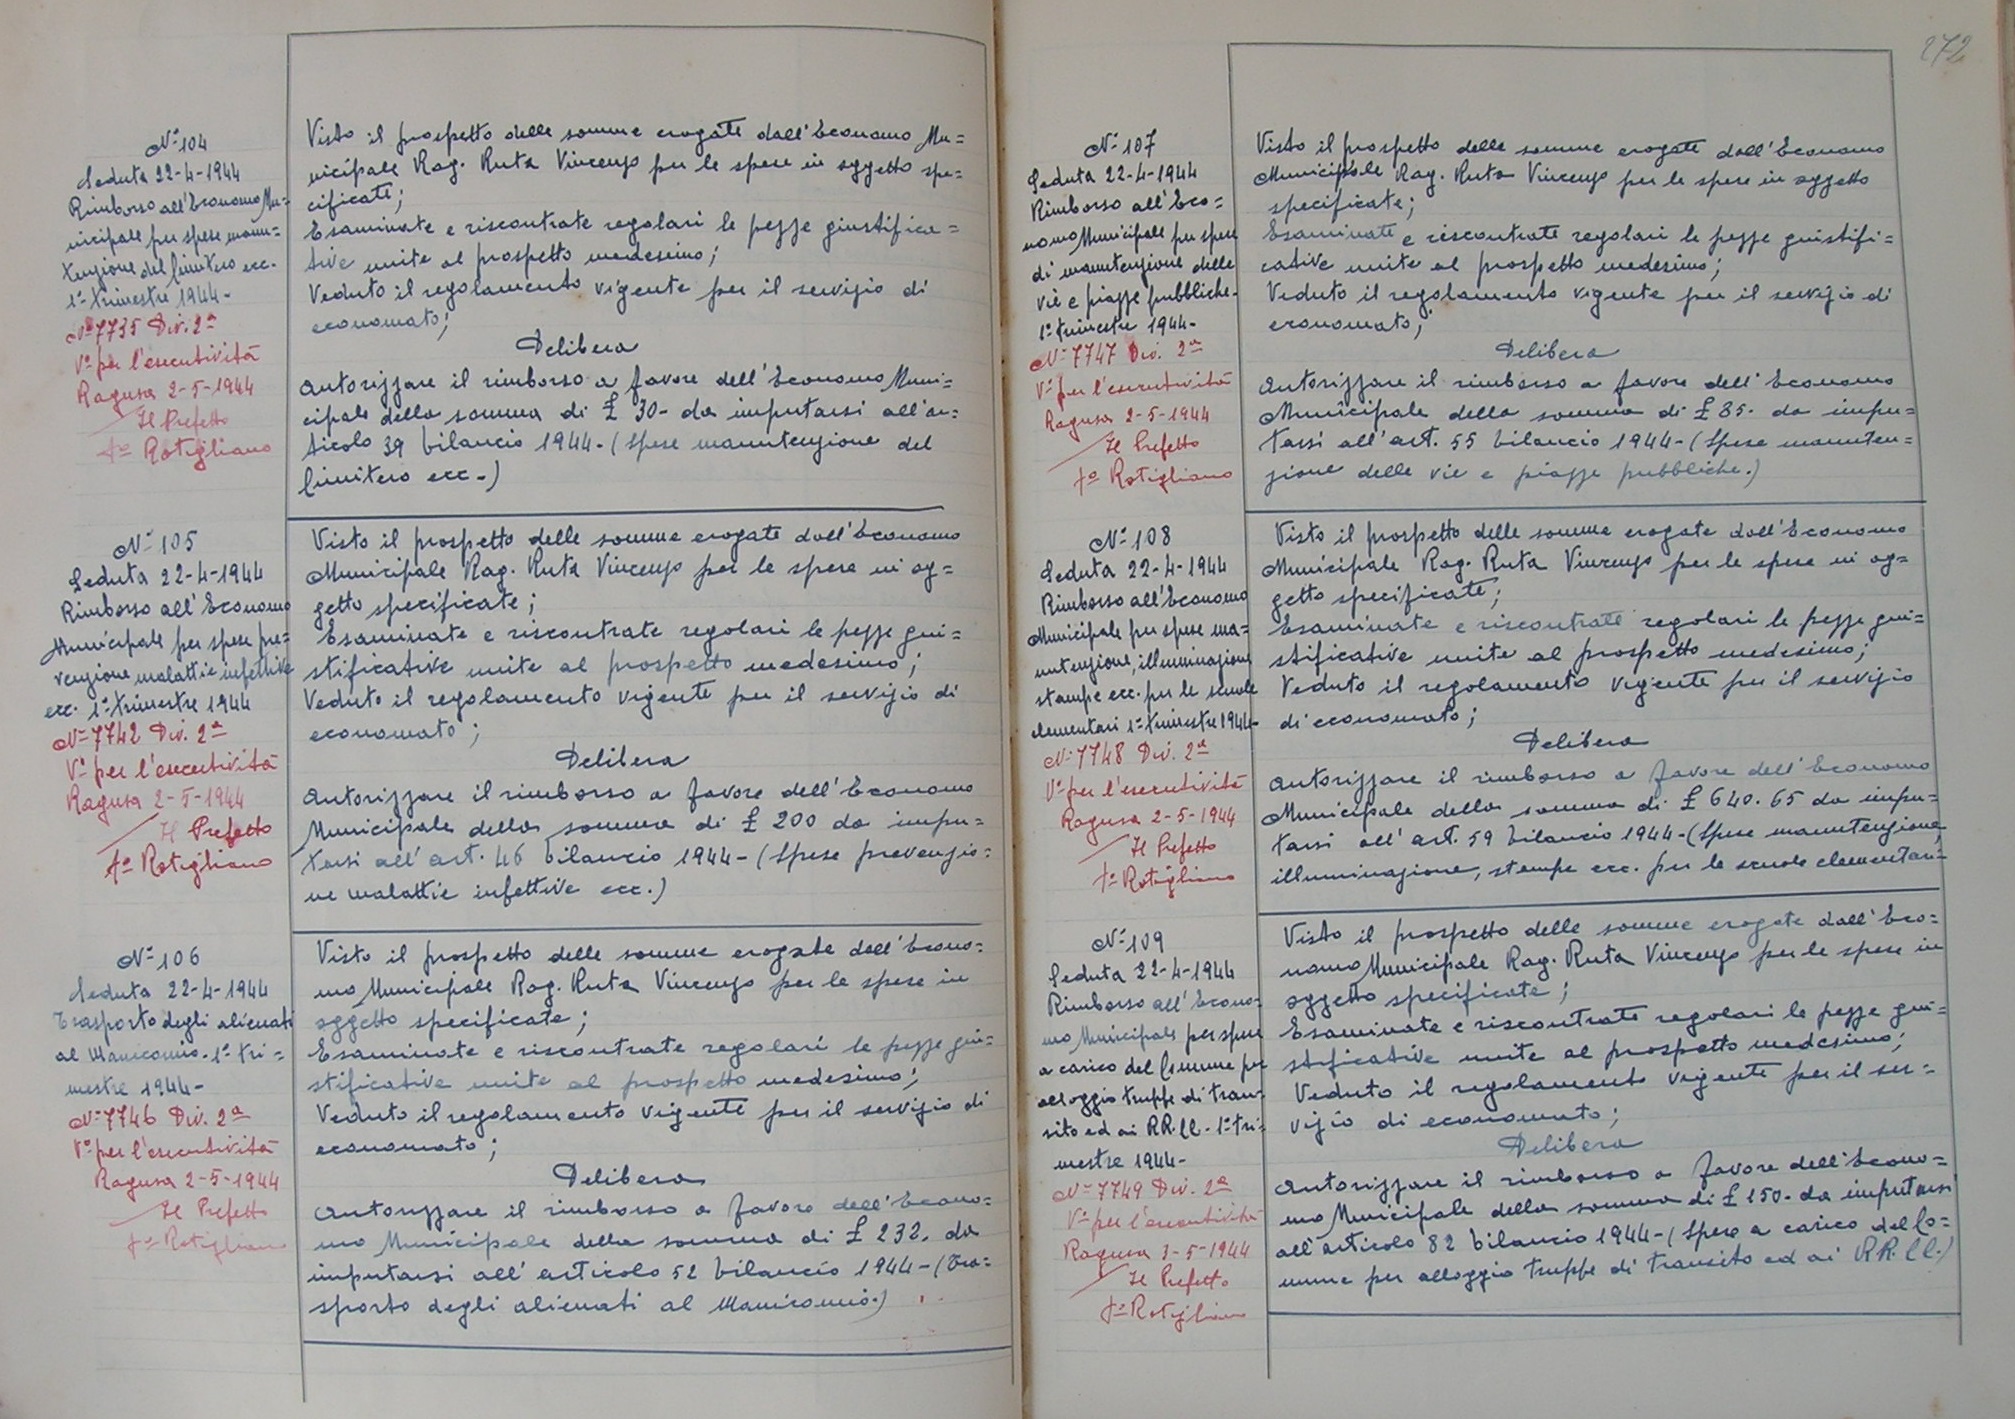 Nº 104
Seduta 22-4-1944
Rimborso all'Economo Mu=
nicipale per spese manu=
tenzione del Cimitero ecc.
1º trimestre 1944-
Nº 7735 Div. 2ª
Vº per l'esecutività
Ragusa 2-5-1944
Il Prefetto
fº Rotigliano
Visto il prospetto delle somme erogate dall'Economo Mu=
nicipale Rag. Ruta Vincenzo per le spese in oggetto spe=
cificate;
Esaminate e riscontrate regolari le pezze giustifica=
tive unite al prospetto medesimo;
Veduto il regolamento vigente per il servizio di
economato;
Delibera
Autorizzare il rimborso a favore dell'Economo Muni=
cipale della somma di £ 30- da imputarsi all'ar=
ticolo 39 bilancio 1944-(Spese manutenzione del
Cimitero ecc-)
Nº 105
Seduta 22-4-1944
Rimborso all'Economo
Municipale per spese pre=
venzione malattie infettive
ecc. 1º trimestre 1944
Nº 7742 Div. 2ª
Vº per l'esecutività
Ragusa 2-5-1944
Il Prefetto
fº Rotigliano
Visto il prospetto delle somme erogate dall'Economo
Municipale Rag. Ruta Vincenzo per le spese in og=
getto specificate;
Esaminate e riscontrate regolari le pezze giu=
stificative unite al prospetto medesimo;
Veduto il regolamento vigente per il servizio di
economato;
Delibera
Autorizzare il rimborso a favore dell'Economo
Municipale della somma di £ 200 da impu=
tarsi all'art. 46 bilancio 1944-(Spese prevenzio=
ne malattie infettive ecc.)
Nº 106
Seduta 22-4-1944
Trasporto degli alienati
al Manicomio-1º tri=
mestre 1944-
Nº 7746 Div. 2ª
Vº per l'esecutività
Ragusa 2-5-1944
Il Prefetto
fº Rotigliano
Visto il prospetto delle somme erogate dall'Econo=
mo Municipale Rag. Ruta Vincenzo per le spese in
oggetto specificate;
Esaminate e riscontrate regolari le pezze giu=
stificative unite al prospetto medesimo;
Veduto il regolamento vigente per il servizio di
economato;
Delibera
Autorizzare il rimborso a favore dell'Econo=
mo Municipale della somma di £ 232. da
imputarsi all'articolo 52 bilancio 1944-(Tra=
sporto degli alienati al Manicomio.)
272
Nº 107
Seduta 22-4-1944
Rimborso all'Eco=
nomo Municipale per spese
di manutenzione delle
vie e piazze pubbliche-
1º trimestre 1944-
Nº 7747 Div. 2ª
Vº per l'esecutività
Ragusa 2-5-1944
Il Prefetto
fº Rotigliano
Visto il prospetto delle somme erogate dall'Economo
Municipale Rag. Ruta Vincenzo per le spese in oggetto
specificate;
Esaminate e riscontrate regolari le pezze giustifi=
cative unite al prospetto medesimo;
Veduto il regolamento vigente per il servizio di
economato;
Delibera
Autorizzare il rimborso a favore dell'Economo
Municipale della somma di £ 85. da impu=
tarsi all'art. 55 bilancio 1944-(Spese manuten=
zione delle vie e piazze pubbliche.)
Nº 108
Seduta 22-4-1944
Rimborso all'Economo
Municipale per spese ma=
nutenzione, illuminazione
stampe ecc. per le scuole
elementari 1º trimestre 1944-
Nº 7748 Div. 2ª
Vº per l'esecutività
Ragusa 2-5-1944
Il Prefetto
fº Rotigliano
Visto il prospetto delle somme erogate dall'Economo
Municipale Rag. Ruta Vincenzo per le spese in og=
getto specificate;
Esaminate e riscontrate regolari le pezze giu=
stificative unite al prospetto medesimo;
Veduto il regolamento vigente per il servizio
di economato;
Delibera
Autorizzare il rimborso a favore dell'Economo
Municipale della somma di £ 640.65 da impu=
tarsi all'art. 59 bilancio 1944-(Spese manutenzione,
illuminazione, stampe ecc. per le scuole elementari=
Nº 109
Seduta 22-4-1944
Rimborso all'Econo=
mo Municipale per spese
a carico del Comune per
alloggio truppe di tran=
sito ed ai RR.CC-1º tri=
mestre 1944-
Nº 7749 Div. 2ª
Vº per l'esecutività
Ragusa 3-5-1944
Il Prefetto
fº Rotigliano
Visto il prospetto delle somme erogate dall'Eco=
nomo Municipale Rag. Ruta Vincenzo per le spese in
oggetto specificate;
Esaminate e riscontrate regolari le pezze giu=
stificative unite al prospetto medesimo;
Veduto il regolamento vigente per il ser=
vizio di economato;
Delibera
Autorizzare il rimborso a favore dell'Econo=
mo Municipale della somma di £ 150- da imputarsi
all'articolo 82 bilancio 1944-(Spese a carico del Co=
mune per alloggio truppe di transito ed ai RR.CC.)